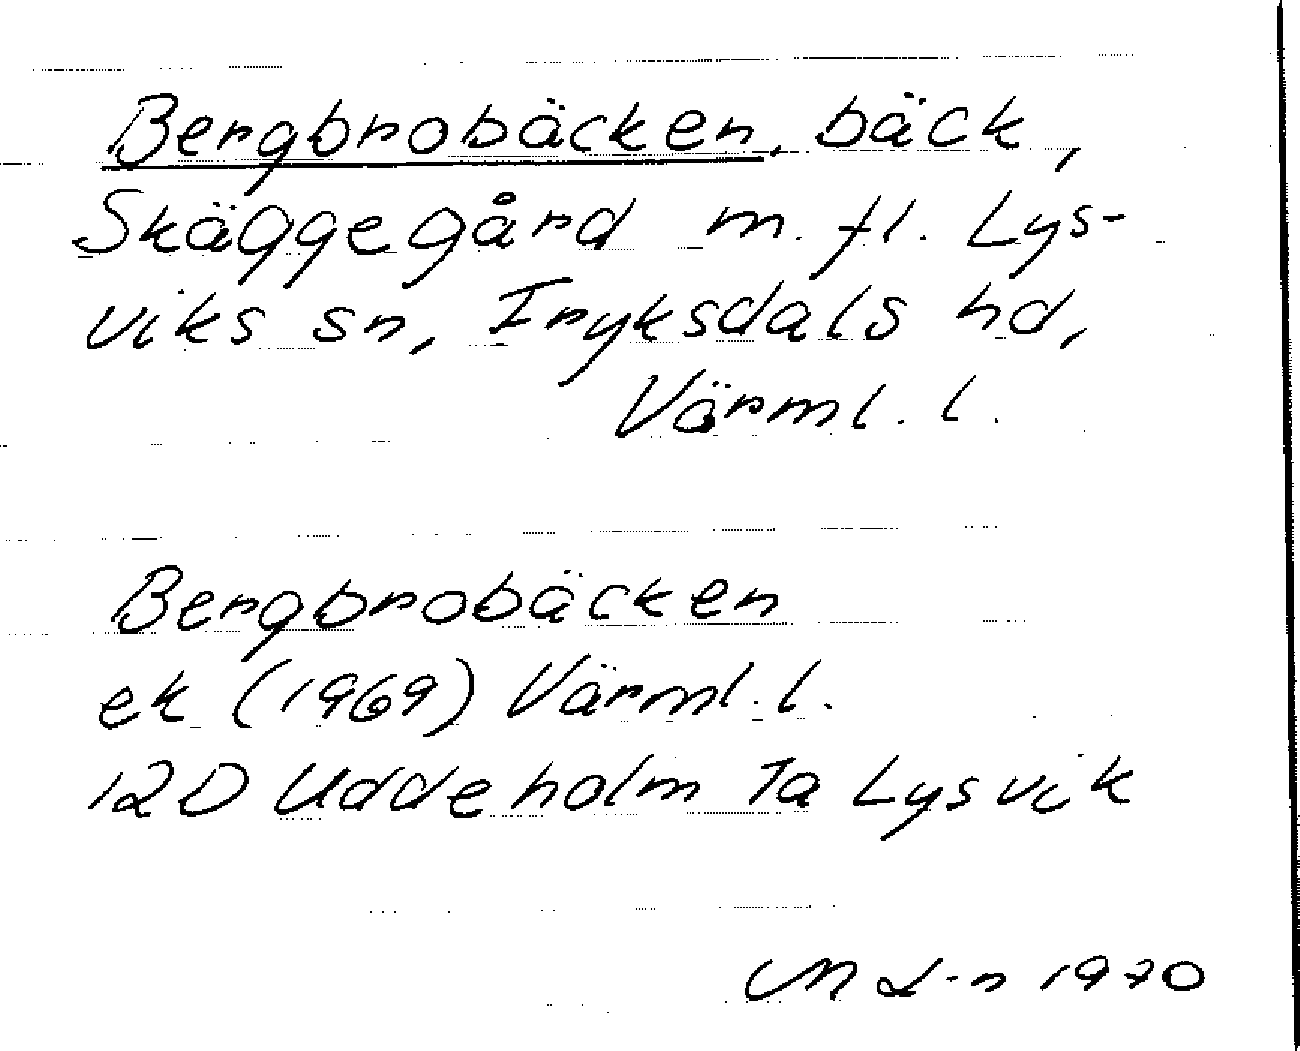 Bergbrobäcken, bäck,
Skäggegård m. fl. Lys-
viks sn, Fryksdals hd,
Värml. l.
Bergbrobäcken
ek (1969) Värml. l.
12D Uddeholm 7a Lysvik
M L-n 1970